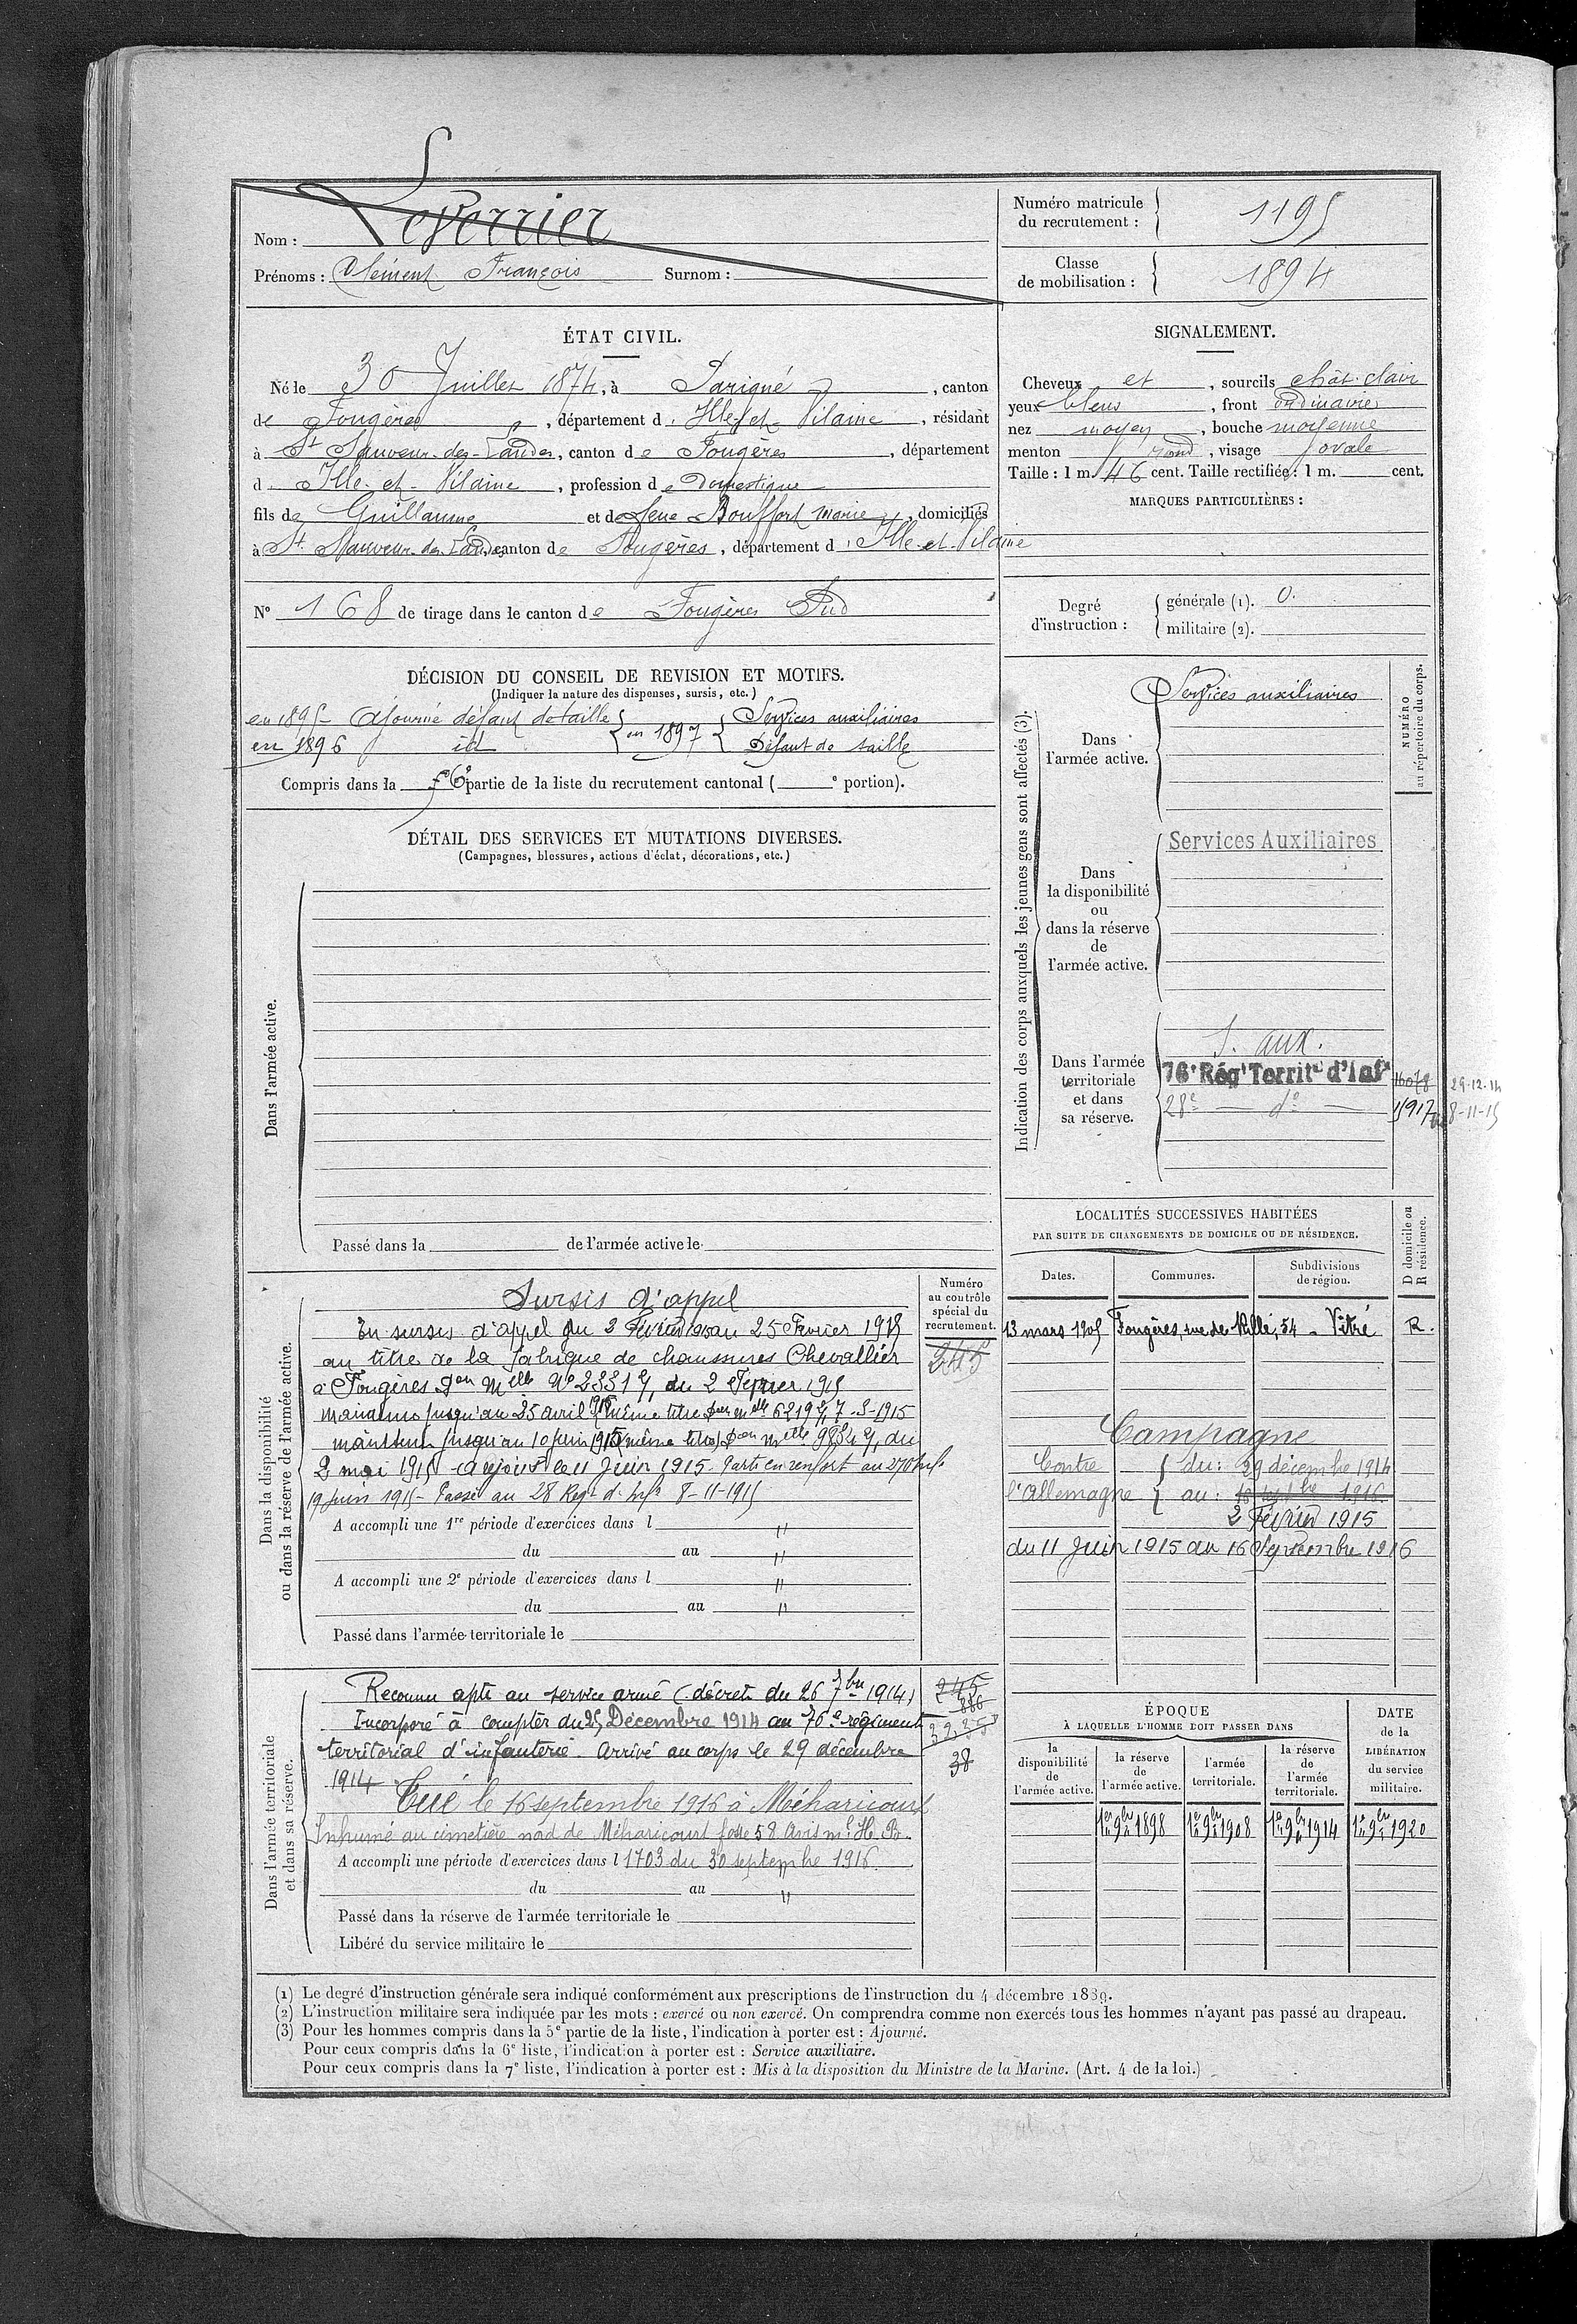 Nom : Leverrier
Prénoms : Clément François Surnom :
Numéro matricule du recrutement : 1195
Classe de mobilisation : 1894
ÉTAT CIVIL.
Né le 30 Juillet 1874, à Parigné, canton
de Fougères, département d'Ille-et-Vilaine, résidant
à St Sauveur-des-Landes, canton de Fougères, département
d'Ille-et-Vilaine, profession de Domestique
fils de Guillaume et de feue Bouffort Marie, domiciliés
à St Sauveur-des-Landes, canton de Fougères, département d'Ille-et-Vilaine
N° 168 de tirage dans le canton de Fougères Sud
SIGNALEMENT.
Cheveux et, sourcils chât. clair
yeux bleus, front ordinaire
nez moyen, bouche moyenne
menton rond, visage ovale
Taille : 1 m. 46 cent. Taille rectifiée : 1 m. cent.
MARQUES PARTICULIÈRES :
Degré d'instruction :
générale (1). 0.
militaire (2).
DÉCISION DU CONSEIL DE REVISION ET MOTIFS.
(Indiquer la nature des dispenses, sursis, etc.)
en 1895 - Ajourné défaut de taille
en 1896 id
en 1897 Services auxiliaires
Défaut de taille
Compris dans la 6e partie de la liste du recrutement cantonal ( e portion).
DÉTAIL DES SERVICES ET MUTATIONS DIVERSES.
(Campagnes, blessures, actions d'éclat, décorations, etc.)
Dans l'armée active.
Passé dans la de l'armée active le
Indication des corps auxquels les jeunes gens sont affectés (3).
NUMÉRO au répertoire du corps.
Dans l'armée active.
Services auxiliaires
Dans la disponibilité ou dans la réserve de l'armée active.
Services Auxiliaires
Dans l'armée territoriale et dans sa réserve.
S. aux.
76e Rég t Territ d'Inf 16078 29-12-14
28e - do - 15917 8-11-15
LOCALITÉS SUCCESSIVES HABITÉES
PAR SUITE DE CHANGEMENTS DE DOMICILE OU DE RÉSIDENCE.
Dates. Communes. Subdivisions de région. D domicile ou R résidence.
13 mars 1905 Fougères, rue de Rillé, 54 - Vitré R.
Campagne
Contre l'Allemagne
du : 29 décembre 1914
au : 16 septbre 1916
2 Février 1915
du 11 Juin 1915 au 16 Septembre 1916
Dans la disponibilité ou dans la réserve de l'armée active.
Numéro au contrôle spécial du recrutement.
245
Sursis d'appel
En sursis d'appel du 2 Février 1915 au 25 Février 1915
au titre de la fabrique de chaussures Chevallier
à Fougères Don Melle No 2331 9, du 2 Février 1915
maintenu jusqu'au 25 avril 1915 (même titre) Don Melle 6219 9, 7-3-1915
maintenu jusqu'au 10 juin 1915 (même titre) Don Melle 9854 9, du
2 mai 1915 - le 11 Juin 1915. Parti en renfort au 270 Inf
19 Juin 1915 - Passé au 28 Regt d. Infie 8-11-1915
A accompli une 1re période d'exercices dans l "
du au "
A accompli une 2e période d'exercices dans l "
du au "
Passé dans l'armée territoriale le
Dans l'armée territoriale et dans sa réserve.
Reconnu apte au service armé (décret du 26 7bre 1914)
Incorporé à compter du 29 Décembre 1914 au 76e régiment
territorial d'infanterie. Arrivé au corps le 29 décembre
1914
Tué le 16 septembre 1916 à Méharicourt
Inhumé au cimetière nord de Méharicourt fosse 58. Avis ml H. B.
A accompli une période d'exercices dans l 1703 du 30 septembre 1916.
du au "
Passé dans la réserve de l'armée territoriale le
Libéré du service militaire le
245
886
38
ÉPOQUE À LAQUELLE L'HOMME DOIT PASSER DANS
la disponibilité de l'armée active.
la réserve de l'armée active.
l'armée territoriale.
la réserve de l'armée territoriale.
DATE de la LIBÉRATION du service militaire.
1er 9bre 1898 1er 9bre 1908 1er 9bre 1914 1er 9bre 1920
(1) Le degré d'instruction générale sera indiqué conformément aux prescriptions de l'instruction du 4 décembre 1889.
(2) L'instruction militaire sera indiquée par les mots : exercé ou non exercé. On comprendra comme non exercés tous les hommes n'ayant pas passé au drapeau.
(3) Pour les hommes compris dans la 5e partie de la liste, l'indication à porter est : Ajourné.
Pour ceux compris dans la 6e liste, l'indication à porter est : Service auxiliaire.
Pour ceux compris dans la 7e liste, l'indication à porter est : Mis à la disposition du Ministre de la Marine. (Art. 4 de la loi.)